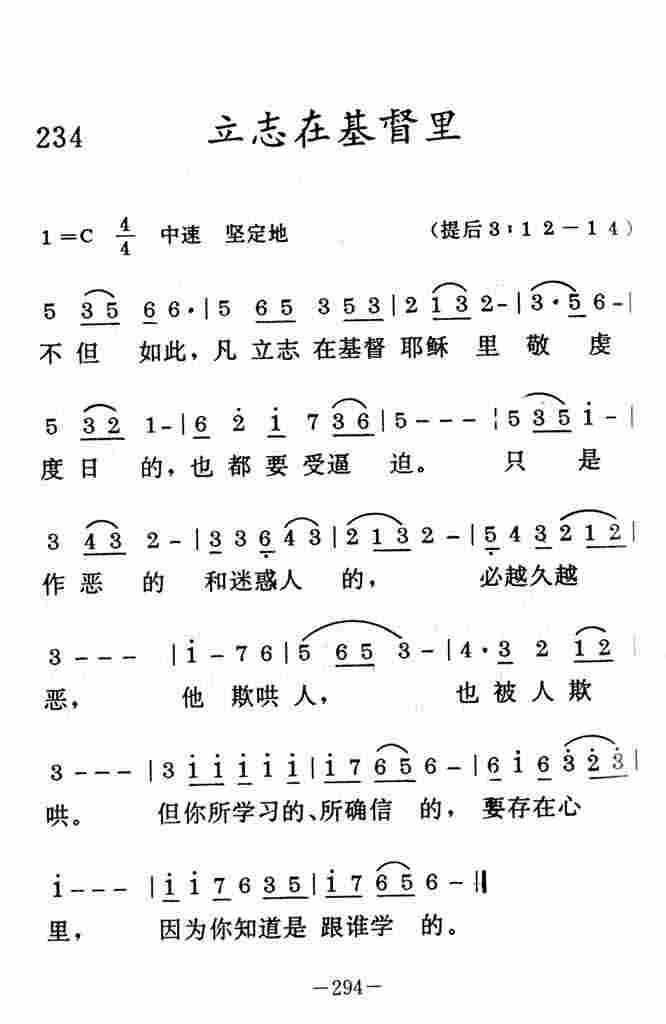 234 立志在基督里
1=C 4/4 中速 坚定地 (提后3:12-14)
5 35 66·|5 65 3 53|2 13 2-|3·56-|
不但 如此,凡 立志 在基督 耶稣 里 敬 虔
5 32 1-|6 2̇ i̇ 7 36|5---|5 35 i̇-|
度日 的,也 都 要 受逼 迫。 只 是
3 43 2-|3 3 6̣ 43|2 13 2-|5̣ 4 3 212|
作恶 的 和迷惑人 的, 必越久越
3--- |i̇-76|5 65 3-|4·3 2 12|
恶, 他 欺哄 人, 也 被 人 欺
3---|3 i̇ i̇ i̇ i̇ i̇|i̇ 7 65 6-|6 i̇ 6 3̇ 2̇ 3̇|
哄。 但你所学习的、所确信 的, 要存在心
i̇--- |i̇ i̇ 7 6 35|i̇ 7 65 6-‖
里, 因为你知道是 跟谁学 的。
-294-